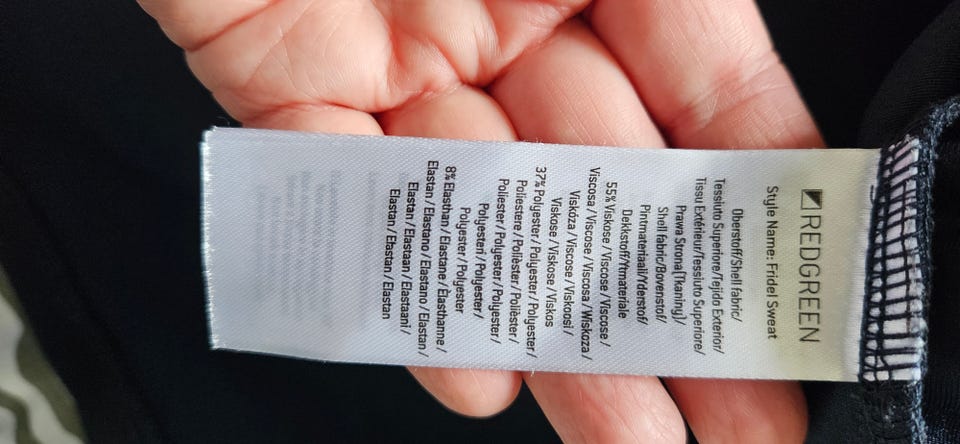 REDGREEN
Style Name: Fridel Sweat
Oberstoff/Shell fabric/
Tessiuto Superiore/Tejido Exterior/
Tissu Extérieur/Tessiuto Superiore/
Prawa Strona[Tkaniny]/
Shell fabric/Bovenstof/
Pintmateriaali/Yderstof/
Dekkstoff/Ytmateriale
55% Viskose / Viscose / Viscose /
Viscosa / Viscose / Viscosa / Wiskoza /
Viskóza / Viscose / Viskoosi /
Viskose / Viskose / Viskos
37% Polyester / Polyester / Polyester /
Poliestere / Polièster / Poliester /
Poliester / Polyester / Polyester /
Polyesteri / Polyester /
Polyester / Polyester
8% Elasthan / Elastane / Élasthanne /
Elastan / Elastano / Elastano / Elastan /
Elastan / Elastaan / Elastaani /
Elastan / Elastan / Elastan